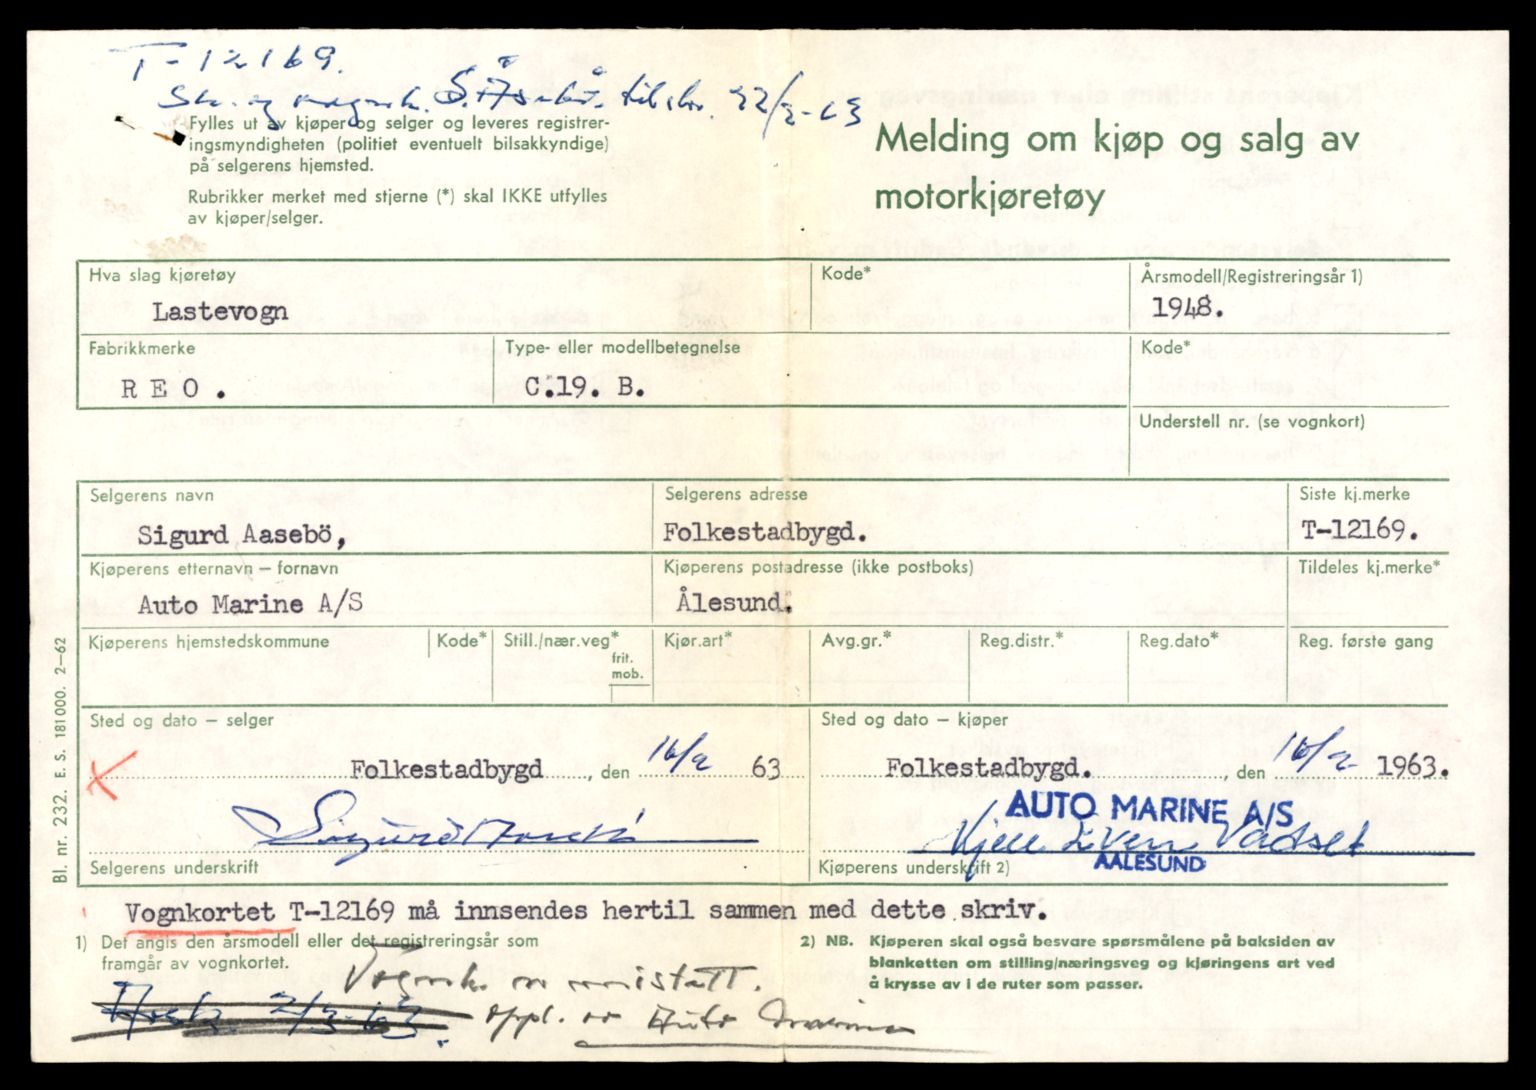 T-12169.
Skr. og vognk. S. Åsebø tilskr. 22/2-63
Fylles ut av kjøper og selger og leveres registrer-
ingsmyndigheten (politiet eventuelt bilsakkyndige)
på selgerens hjemsted.
Rubrikker merket med stjerne (*) skal IKKE utfylles
av kjøper/selger.
Melding om kjøp og salg av
motorkjøretøy
Hva slag kjøretøy Kode* Årsmodell/Registreringsår 1)
Lastevogn 1948.
Fabrikkmerke Type- eller modellbetegnelse Kode*
R E O . C.19. B.
Understell nr. (se vognkort)
Selgerens navn Selgerens adresse Siste kj.merke
Sigurd Aasebö, Folkestadbygd. T-12169.
Kjøperens etternavn – fornavn Kjøperens postadresse (ikke postboks) Tildeles kj.merke*
Auto Marine A/S Ålesund.
Kjøperens hjemstedskommune Kode* Still./nær.veg* Kjør.art* Avg.gr.* Reg.distr.* Reg.dato* Reg. første gang
frit.
mob.
Sted og dato – selger Sted og dato – kjøper
Folkestadbygd , den 16/2 63 Folkestadbygd. , den 16/2 1963.
AUTO MARINE A/S
Sigurd Aasebö Kjell Vadset
AALESUND
Selgerens underskrift Kjøperens underskrift 2)
Bl. nr. 232. E. S. 181000. 2–62
Vognkortet T-12169 må innsendes hertil sammen med dette skriv.
1) Det angis den årsmodell eller det registreringsår som
framgår av vognkortet.
2) NB. Kjøperen skal også besvare spørsmålene på baksiden av
blanketten om stilling/næringsveg og kjøringens art ved
å krysse av i de ruter som passer.
Vognk. er mistatt.
2/3-63. oppl. av Auto Marine